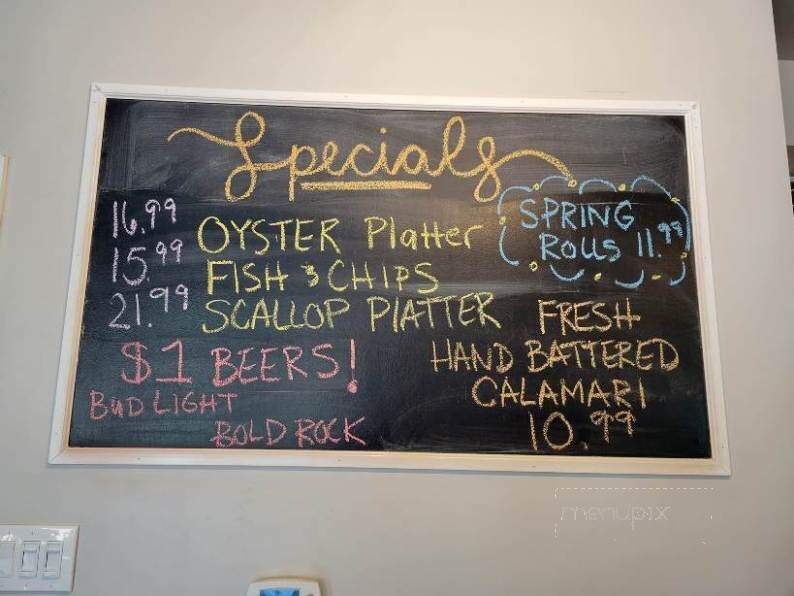 Specials
16.99 OYSTER Platter
15.99 FISH & CHIPS
21.99 SCALLOP PlATTER
SPRING
ROLLS 11.99
$1 BEERS!
BUD LIGHT
BOLD ROCK
FRESH
HAND BATTERED
CALAMARI
10.99
menupix